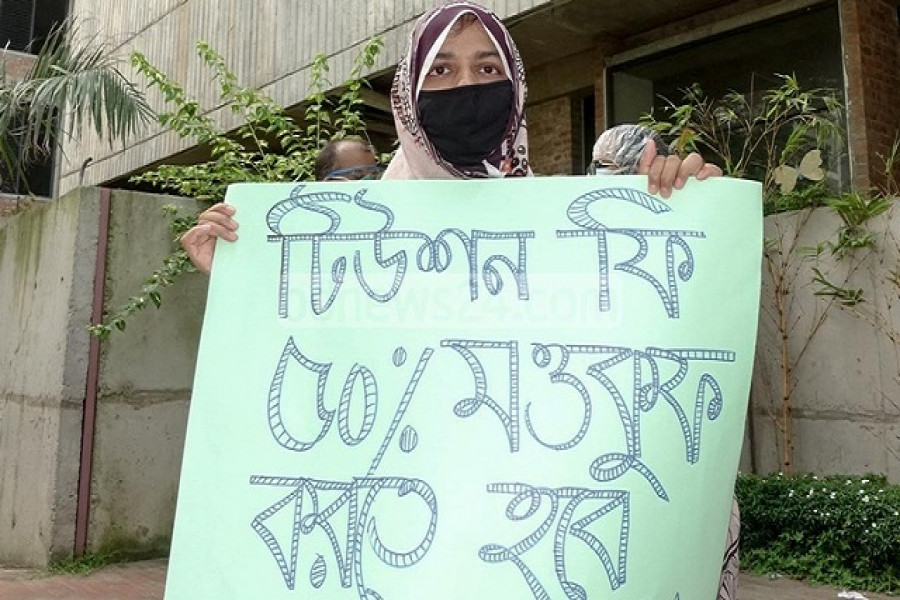 টিউশন ফি
৫০% মওকুফ
করতে হবে
bdnews24.com